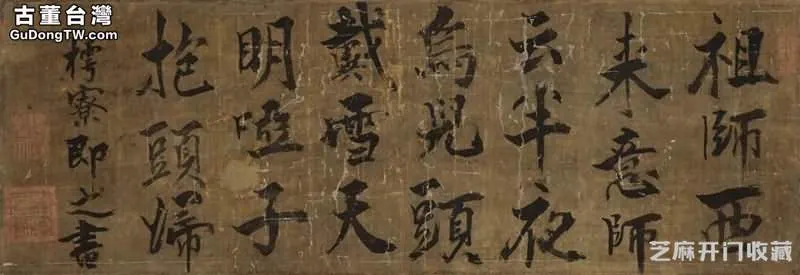 古董台灣
GuDongTW.com
祖師西
来意師
云半夜
烏兒頭
戴雪天
明啞子
抱頭歸
樗寮即之書
芝麻开门收藏